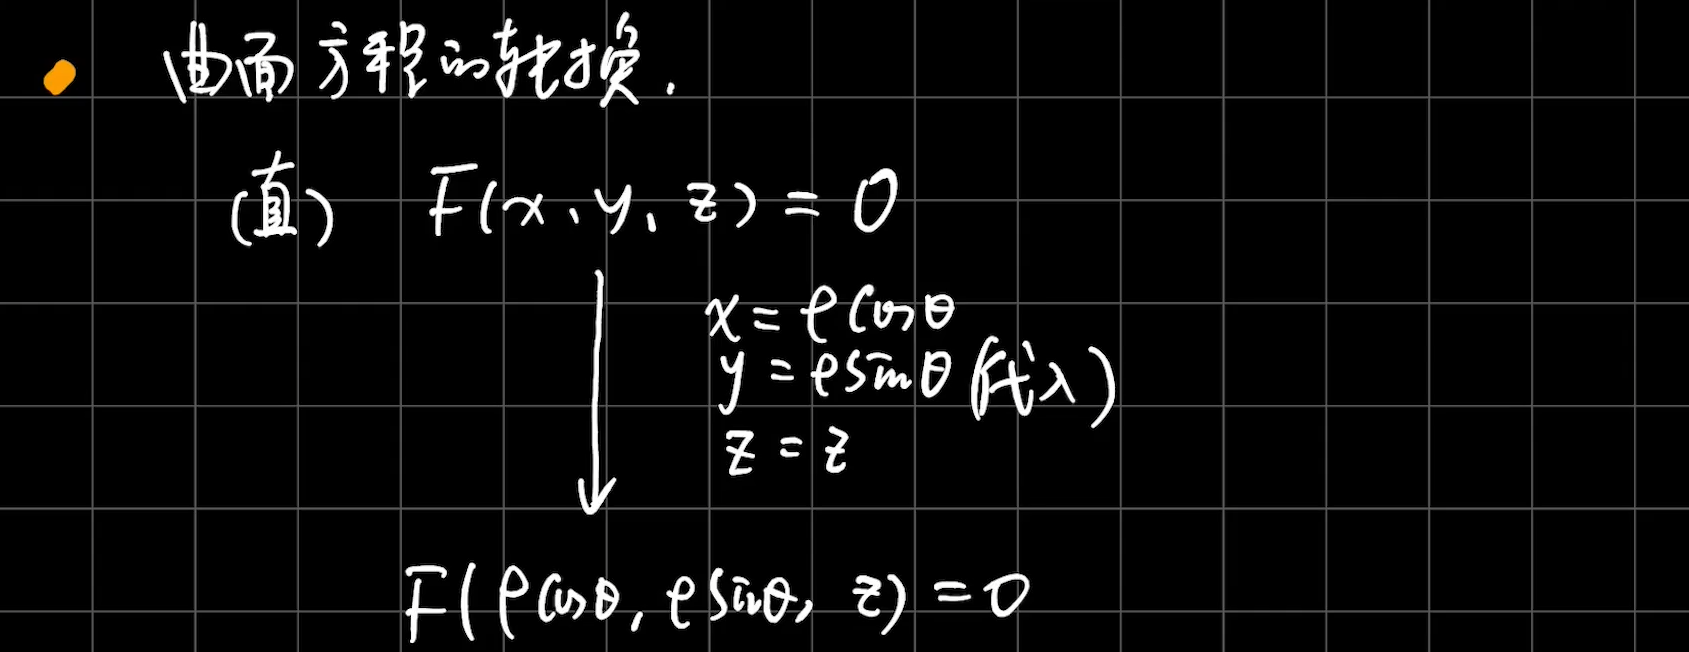 曲面方程的转换.
(直) F(x、y、z)=0
x=ρcosθ
y=ρsinθ (代入)
z=z
F(ρcosθ, ρsinθ, z)=0